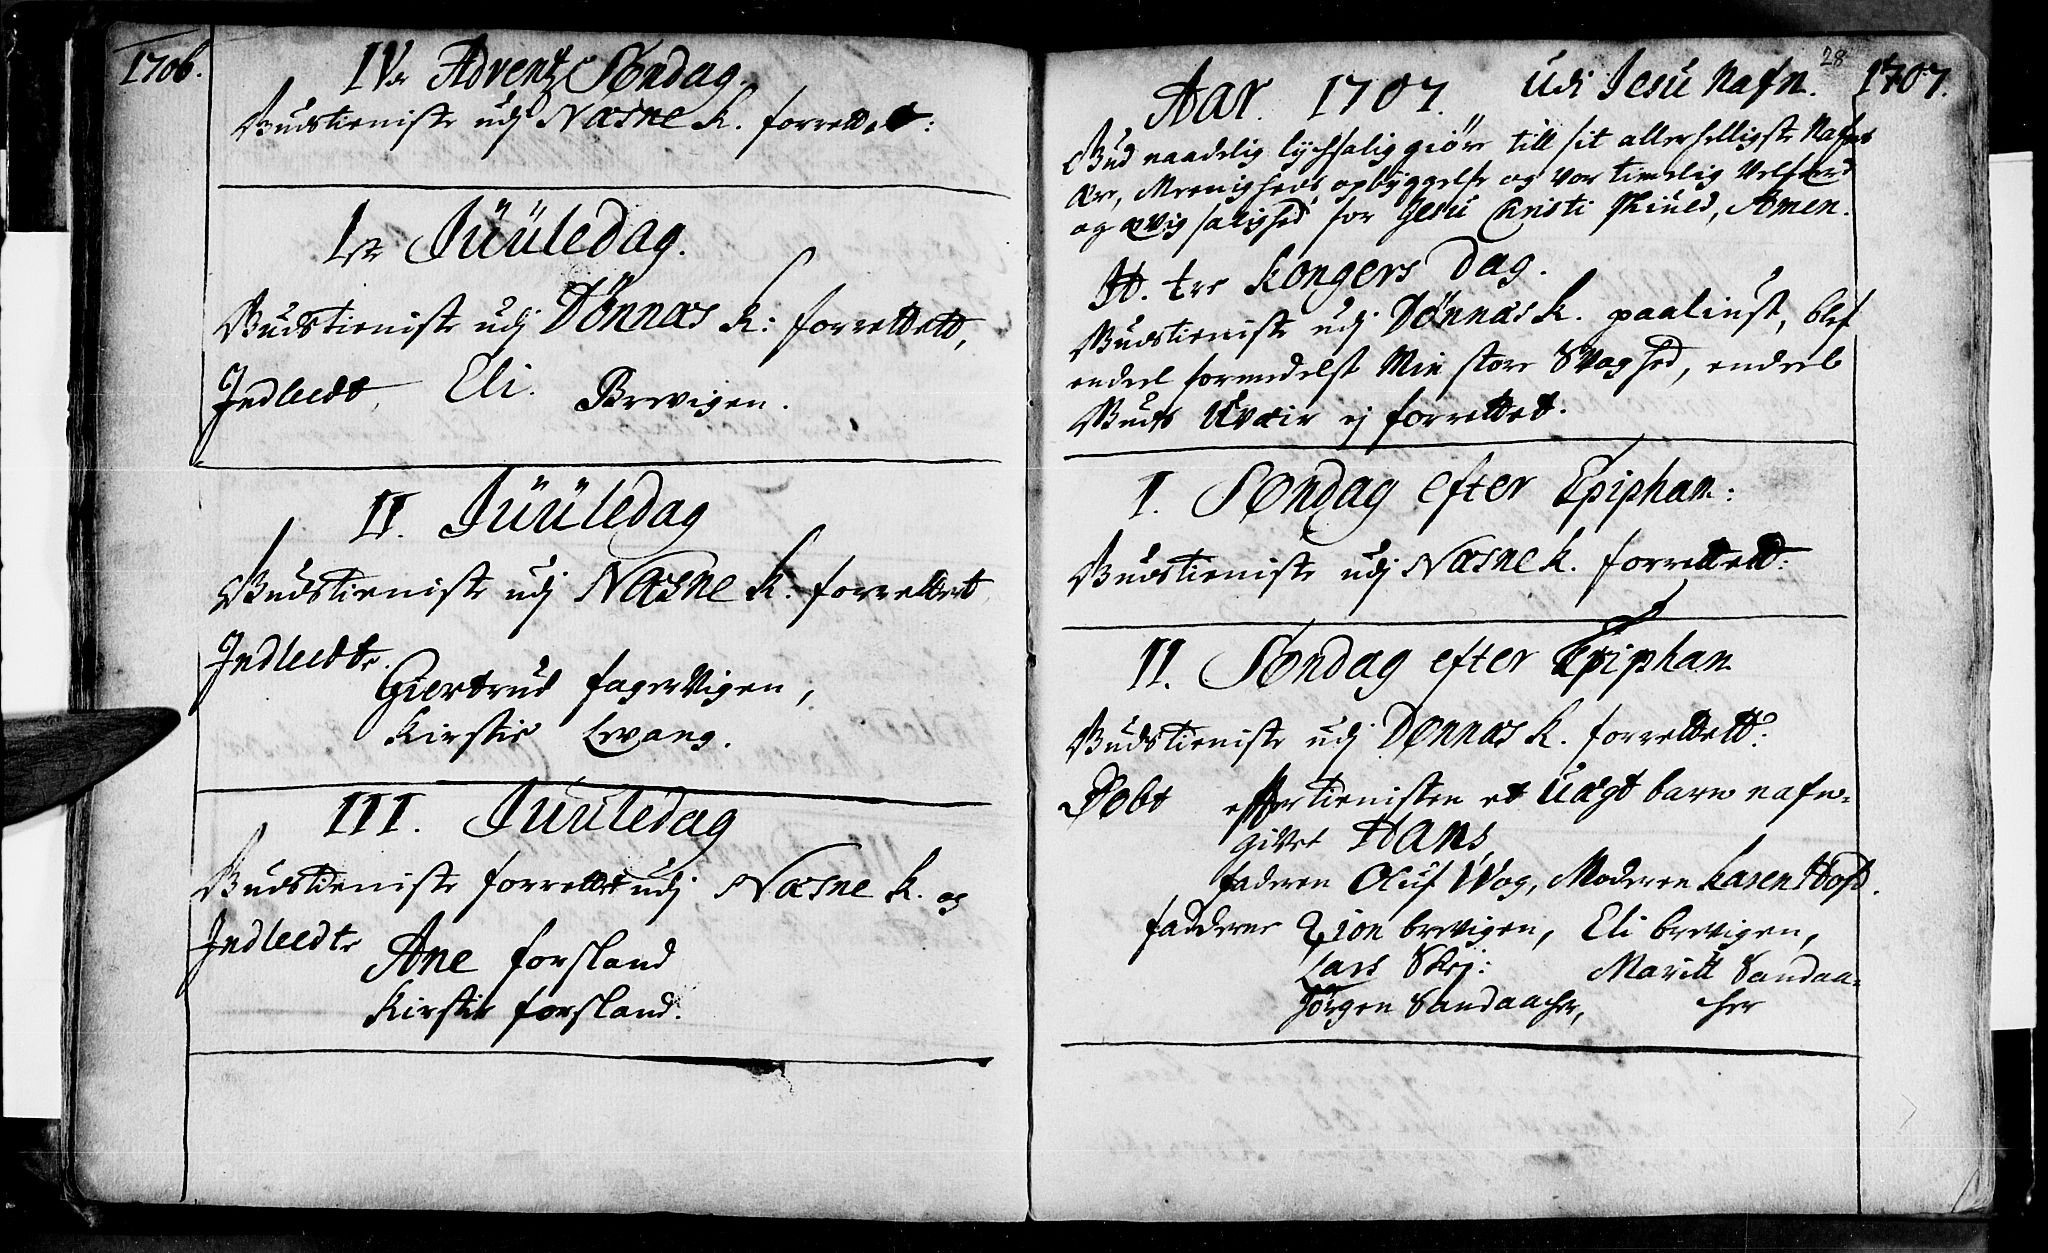 1706.
IVde Advents Søndag.
Gudstieniste udj Næsne K. forrettet:
1ste Jüüledag.
Gudstieniste udj Dönnæs K: forrettett,
Jndleedt, Eli. Brevigen.
II. Jüüledag
Gudstieniste udj Næsne K: forrettet
Jndleedte.
Giertrud fagervigen,
Kirstie Levang.
III. Juuledag
Gudstieniste forrettet udj Næsne K. og
Jndleedte Ane forsland
Kirstie forsland.
28
Aar. 1707. Udi Jesu Nafn. 1707.
Gud naadelig lychsaliggiöre till sit allerhelligste Nafns
ære, Meenigheds opbyggelse og vor timelig Velfærd
og ævig salighed for Jesu Christi skiuld, Amen.
H. tre Kongers Dag.
Gudstieniste udj Dönnæs K. paaliust, blef
endeel formedelst Min store Svaghed, endeel
Guds Uvæir ej forrettet.
I. Søndag efter Epiphan:
Gudstieniste udj Næsne K. forrettett:
II. Søndag efter Epiphan
Gudstieniste udj Dønnæs K. forrettett:
Døbt effter tienisten et Uægt barn nafn-
givet Hans
faderen Oluf Wog, Moderen Karen Hofd.
fadderne Zion brevigen, Eli brevigen,
Lars Skej: Maritt Sandaa-
Jörgen Sandaacher, cher